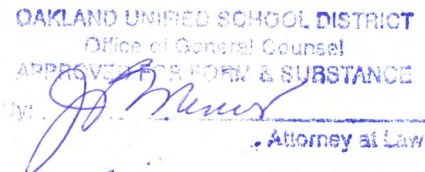 OAKLAND UNIFIED SCHOOL DISTRICT
Office of General Counsel
APPROVED FOR FORM & SUBSTANCE
By:
Attorney at Law